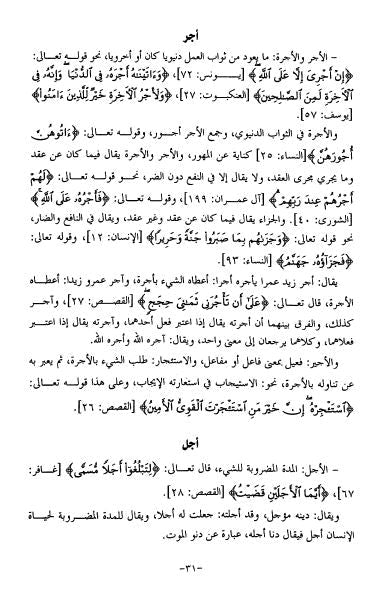 أجر
– الأجر والأجرة: ما يعود من ثواب العمل دنيويا كان أو أخرويا، نحو قوله تعالى:
﴿إِنْ أَجْرِيَ إِلَّا عَلَى اللَّهِ﴾ [يونس: ٧٢]، ﴿وَءَاتَيْنَاهُ أَجْرَهُ فِي الدُّنْيَا وَإِنَّهُ فِي
الْآخِرَةِ لَمِنَ الصَّالِحِينَ﴾ [العنكبوت: ٢٧]، ﴿وَلَأَجْرُ الْآخِرَةِ خَيْرٌ لِلَّذِينَ ءَامَنُوا﴾
[يوسف: ٥٧].
والأجرة في الثواب الدنيوي، وجمع الأجر أجور، وقوله تعالى: ﴿ءَاتُوهُنَّ
أُجُورَهُنَّ﴾ [النساء: ٢٥] كناية عن المهور، والأجر والأجرة يقال فيما كان عن عقد
وما يجري مجرى العقد، ولا يقال إلا في النفع دون الضر، نحو قوله تعالى: ﴿لَهُمْ
أَجْرُهُمْ عِنْدَ رَبِّهِمْ﴾ [آل عمران: ١٩٩]، وقوله تعالى: ﴿فَأَجْرُهُ عَلَى اللَّهِ﴾
[الشورى: ٤٠]. والجزاء يقال فيما كان عن عقد وغير عقد، ويقال في النافع والضار،
نحو قوله تعالى: ﴿وَجَزَاهُمْ بِمَا صَبَرُوا جَنَّةً وَحَرِيرًا﴾ [الإنسان: ١٢]، وقوله تعالى:
﴿فَجَزَاؤُهُ جَهَنَّمُ﴾ [النساء: ٩٣].
يقال: أجر زيد عمرا يأجره أجرا: أعطاه الشيء بأجرة، وآجر عمرو زيدا: أعطاه
الأجرة، قال تعالى: ﴿عَلَى أَنْ تَأْجُرَنِي ثَمَانِيَ حِجَجٍ﴾ [القصص: ٢٧]، وآجر
كذلك، والفرق بينهما أن أجرته يقال إذا اعتبر فعل أحدهما، وآجرته يقال إذا اعتبر
فعلاهما، وكلاهما يرجعان إلى معنى واحد، ويقال: آجره الله وأجره الله.
والأجير: فعيل بمعنى فاعل أو مفاعل، والاستئجار: طلب الشيء بالأجرة، ثم يعبر به
عن تناوله بالأجرة، نحو: الاستيجاب في استعارته الإيجاب، وعلى هذا قوله تعالى:
﴿اسْتَأْجِرْهُ إِنَّ خَيْرَ مَنِ اسْتَأْجَرْتَ الْقَوِيُّ الْأَمِينُ﴾ [القصص: ٢٦].
أجل
– الأجل: المدة المضروبة للشيء، قال تعالى: ﴿لِتَبْلُغُوا أَجَلًا مُسَمًّى﴾ [غافر:
٦٧]، ﴿أَيَّمَا الْأَجَلَيْنِ قَضَيْتُ﴾ [القصص: ٢٨].
ويقال: دينه مؤجل، وقد أجلته: جعلت له أجلا، ويقال للمدة المضروبة لحياة
الإنسان أجل فيقال دنا أجله، عبارة عن دنو الموت.
–٣١–